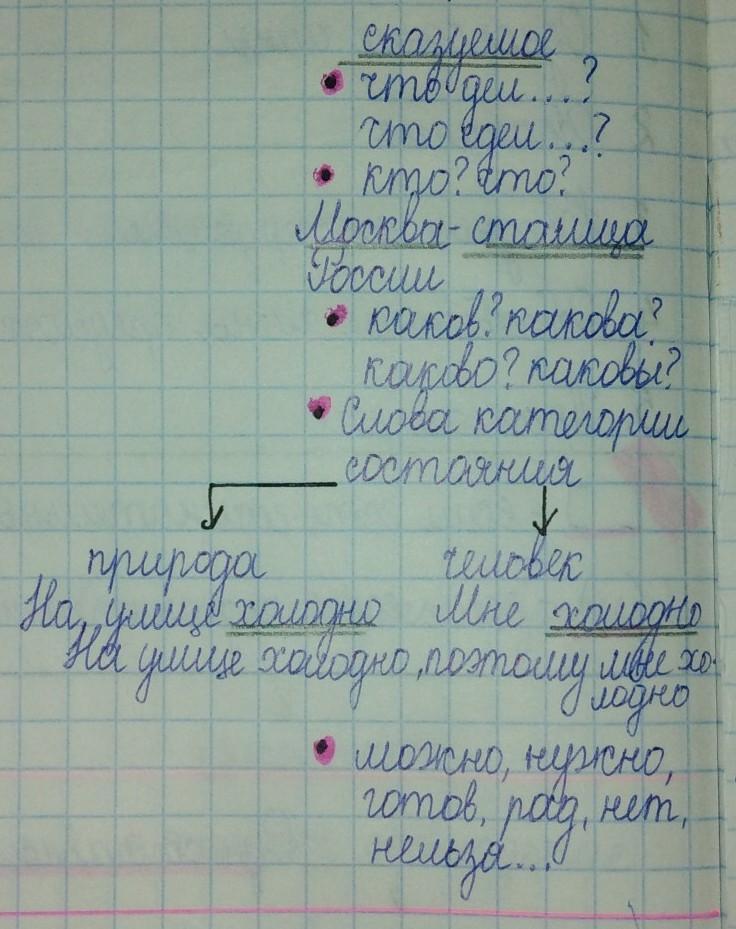 сказуемое
что дел....?
что сдел...?
кто? что?
Москва - столица
России
каков? какова?
каково? каковы?
Слова категории
состояния
природа человек
На улице холодно Мне холодно
На улице холодно, поэтому мне хо-
лодно
можно, нужно,
готов, рад, нет,
нельзя...